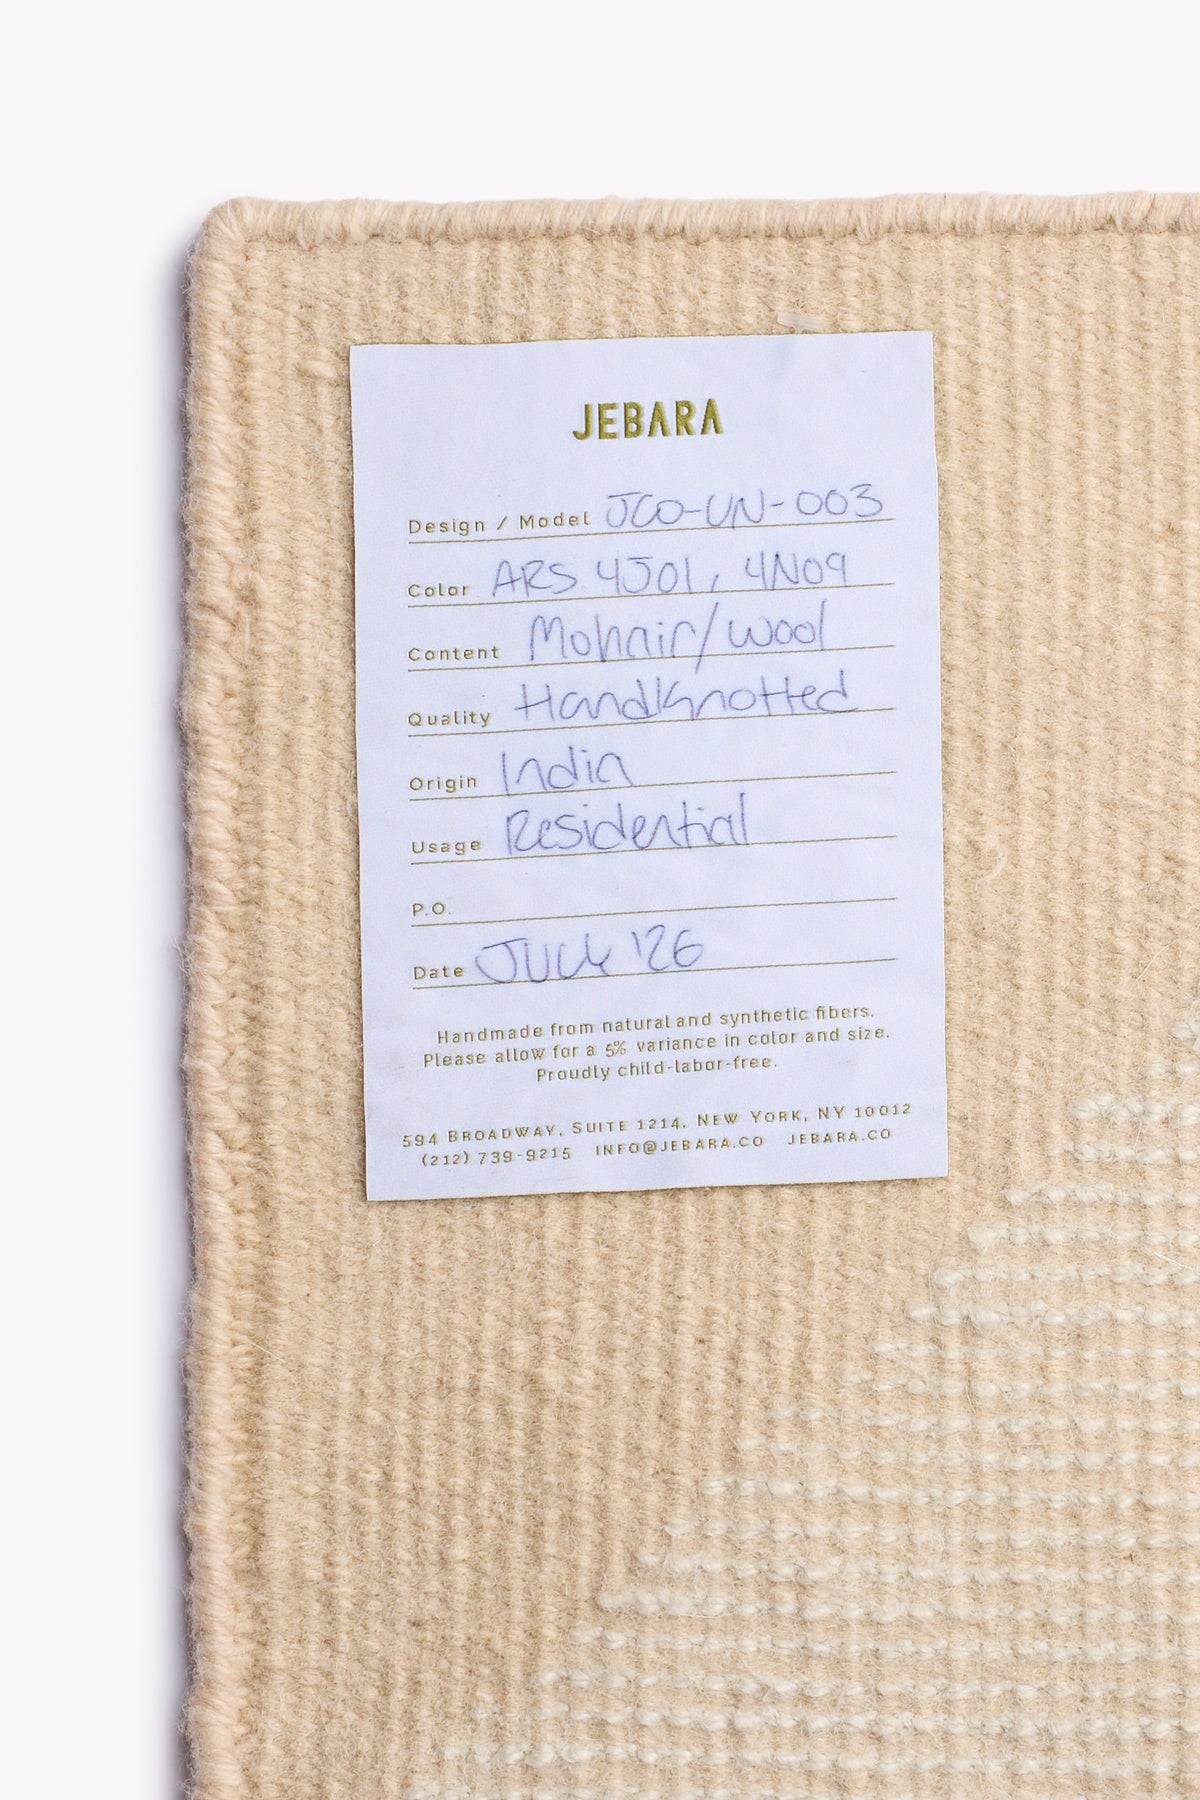 JEBARA
Design / Model JCO-UN-003
Color ARS 4J01, 4N09
Content Mohair/wool
Quality HandKnotted
Origin India
Usage Residential
P.O.
Date '26
Handmade from natural and synthetic fibers.
Please allow for a 5% variance in color and size.
Proudly child-labor-free.
594 BROADWAY, SUITE 1214, NEW YORK, NY 10012
(212) 739-9215 INFO@JEBARA.CO JEBARA.CO